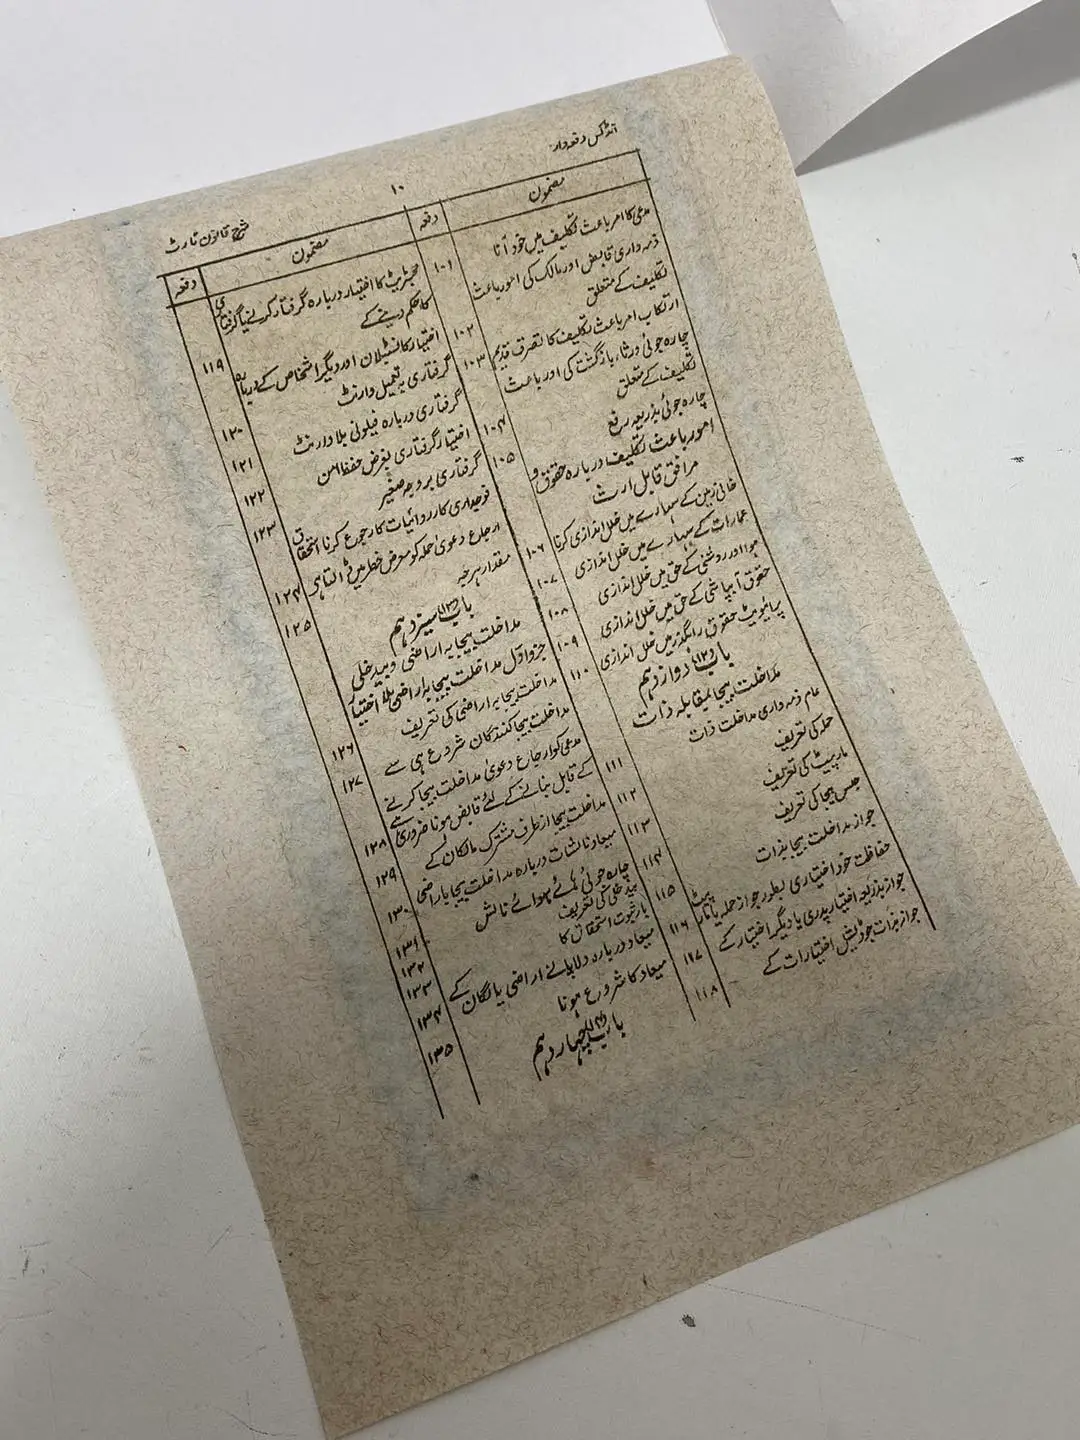 انڈکس دفعہ وار
۱۰
شرح قانون ٹارٹ
مضمون
دفعہ
مدعی کا امر باعث تکلیف میں خود آنا
۱۰۱
ذمہ داری قابض اور مالک کی امور باعث
تکلیف کے متعلق
۱۰۲
ارتکاب امر باعث تکلیف کا تصرف قدیم
۱۰۳
چارہ جوئی ورثاء بازگشت کی اور باعث
تکلیف کے متعلق
۱۰۴
چارہ جوئی بذریعہ رفع
۱۰۵
امور باعث تکلیف دربارہ حقوق و
مرافق قابل ارث
خالی زمین کے سہارے میں خلل اندازی کرنا
۱۰۶
عمارات کے سہارے میں خلل اندازی
۱۰۷
ہوا اور روشنی کے حق میں خلل اندازی
۱۰۸
حقوق آبپاشی کے حق میں خلل اندازی
۱۰۹
پرائیویٹ حقوق راہگذر میں خلل اندازی
۱۱۰
باب (۱۲) دوازدہم
مداخلت بیجا بمقابلہ ذات
عام ذمہ داری مداخلت ذات
۱۱۱
حملہ کی تعریف
۱۱۲
مارپیٹ کی تعریف
۱۱۳
حبس بیجا کی تعریف
۱۱۴
جواز مداخلت بیجا بذات
۱۱۵
حفاظت خود اختیاری بطور جواز حملہ یا مار پیٹ
۱۱۶
جواز بذریعہ اختیار پدری یا دیگر اختیار کے
۱۱۷
جواز بذات جوڈیشل اختیارات کے
۱۱۸
مضمون
دفعہ
مجسٹریٹ کا اختیار دربارہ گرفتار کرنے یا گرفتاری
کا حکم دینے کے
۱۱۹
اختیار کانسٹیبلان اور دیگر اشخاص کے دربارہ
گرفتاری بہ تعمیل وارنٹ
۱۲۰
گرفتاری دربارہ فیلونی بلا وارنٹ
۱۲۱
اختیار گرفتاری بغرض حفظ امن
۱۲۲
گرفتاری بر وجہ صغیر
۱۲۳
فوجداری کارروائیات کا رجوع کرنا استحقاق
ارجاع دعویٰ حملہ کو معرض خطر میں ڈالتا ہے
۱۲۴
مقدار ہرجہ
۱۲۵
باب (۱۳) سیزدہم
مداخلت بیجا بہ اراضی و بیدخلی
جزو اول مداخلت بیجا بہ اراضی بلا اختیار
مداخلت بیجا بہ اراضی کی تعریف
۱۲۶
مداخلت بیجا کنندگان شروع ہی سے
۱۲۷
مدعی کو ارجاع دعویٰ مداخلت بیجا کرنے
کے قابل بنانے کے لئے قابض ہونا ضروری ہے
۱۲۸
مداخلت بیجا از طرف مشترک مالکان کے
۱۲۹
میعاد نالشات دربارہ مداخلت بیجا باراضی
۱۳۰
چارہ جوئی ہائے سوائے نالش
۱۳۱
بیدخلی کی تعریف
۱۳۲
بار ثبوت استحقاق کا
۱۳۳
میعاد دربارہ دلاپانے اراضی یا لگان کے
۱۳۴
میعاد کا شروع ہونا
۱۳۵
باب (۱۴) چہاردہم